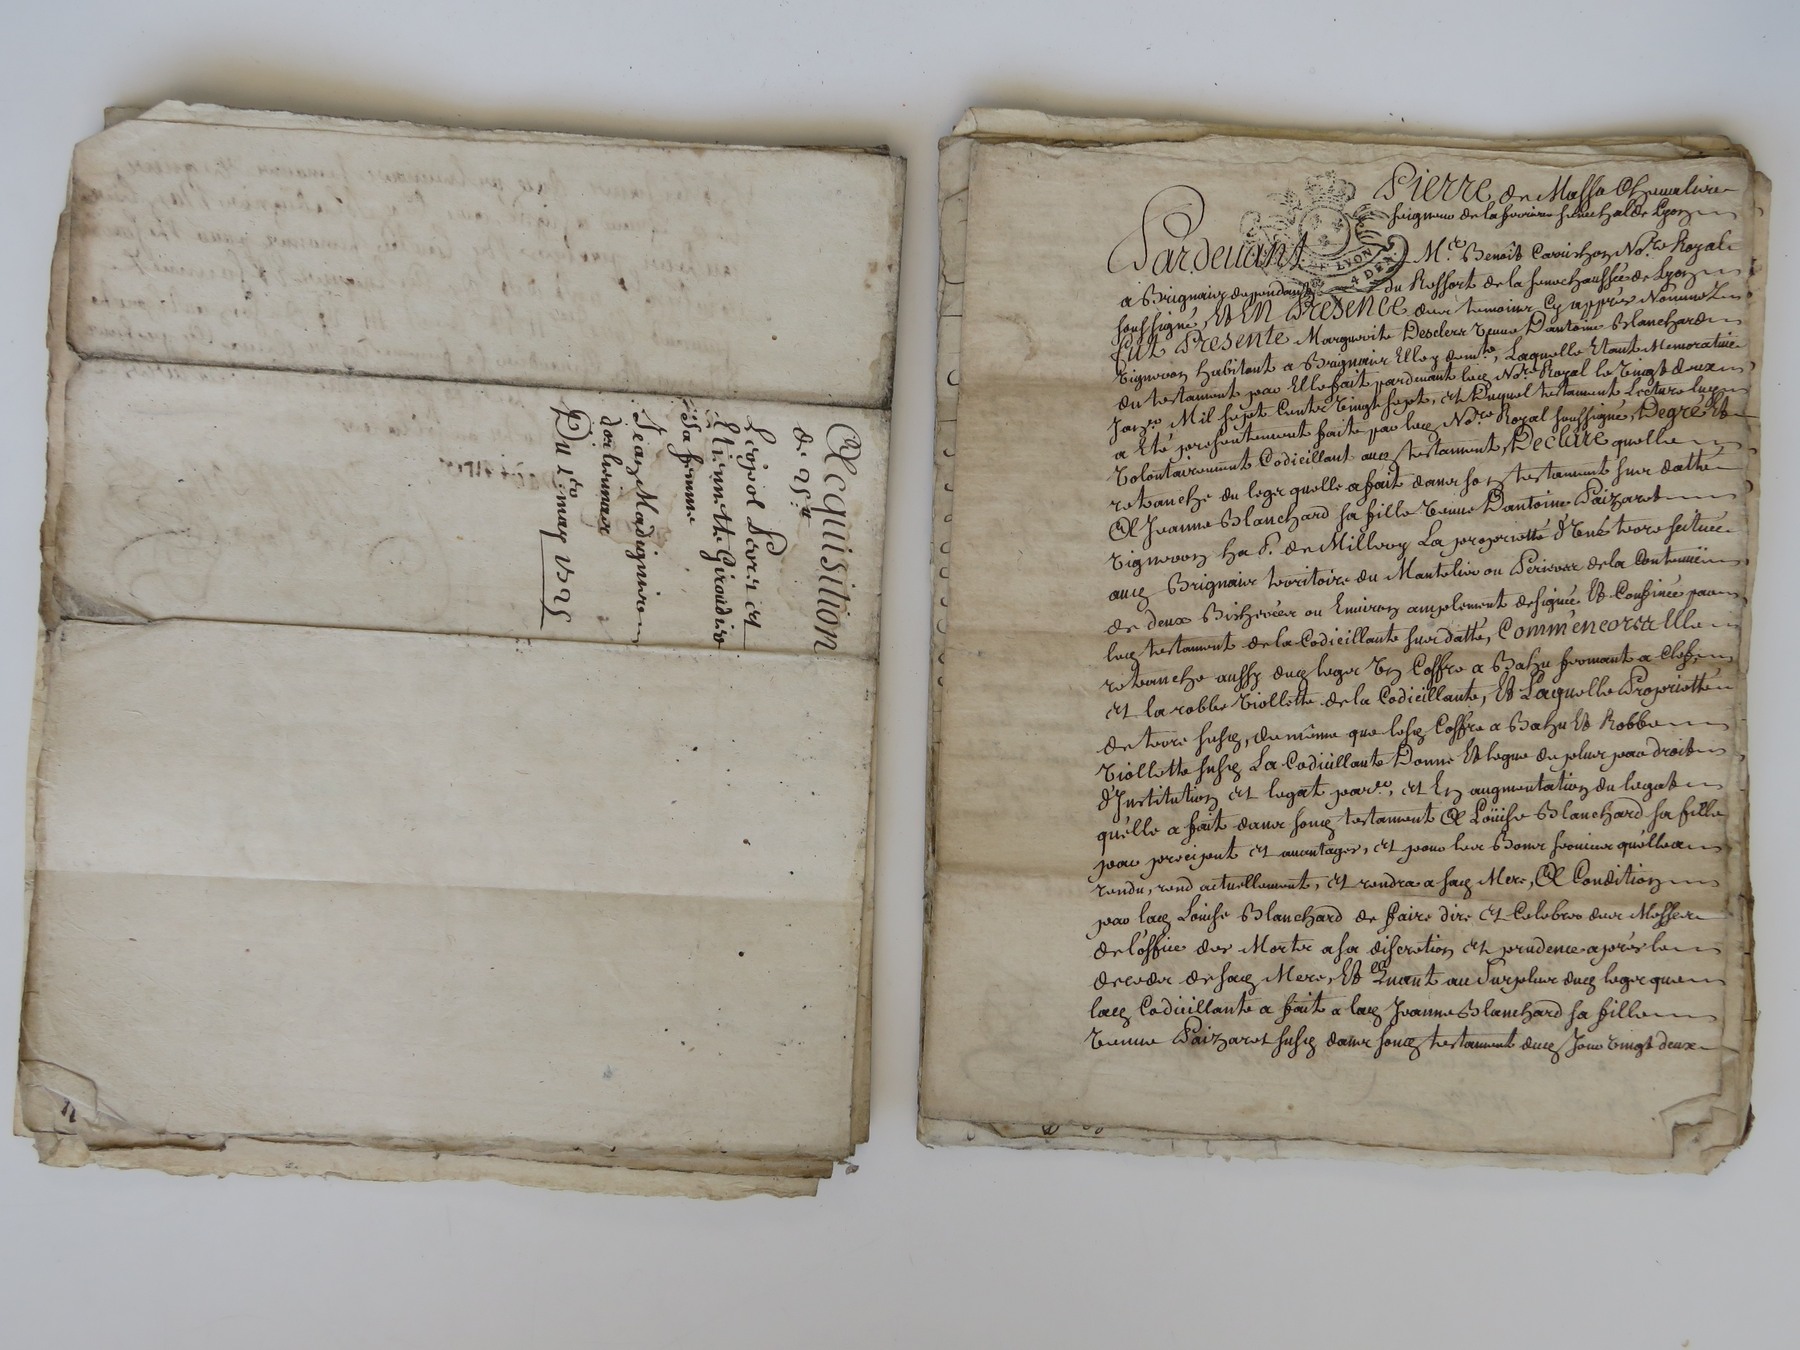 Acquisition
de 25#
Leopol Perra et
Etiennette Giroudio
sa femme
Jean Madigniere
d'orliennax
Du 2 may 1525
Pierre de Massa Chevalier
seigneur de la ferriere senechal de Lyon
DE LYON
4 DEN
Pardevant Mre Benoit Cavichon Nore Royal
a Brignaix dependant du Ressort de la senechaussée de Lyon
soussigné, Et En Presence des temoins Cy apprés Nommez
Fut Presente Marguerite Desclers veuve D'antoine Blanchard
vigneron habitant a Brignaix Elle y demte, Laquelle Etant Memorative
du testament par Elle fait pardevant led Nore Royal le vingt deux
Janvr Mil sept Cents vingt sept, et Duquel testament Lecture luy
a Eté presentement faite par led Nore Royal soussigné, De gré Et
volontairement Codicillant aud testament, Declare quelle
retranche du leger quelle a fait dans son testament sur datté
A Jeanne Blanchard sa fille veuve D'antoine Paizaret
vigneron ha P. de Millery La proprietté d'Une terre scituée
aud Brignaix territoire du Mantelier ou Perieres de la Contenüe
de deux Bicherées ou Environ amplement designée Et Confinée par
led testament de la Codicillante sur datté, Comme encores Elle
retranche aussy dud leger Un Coffre a Bahu fermant a Clefs
et la robbe violette de la Codicillante, Et Laquelle Proprietté
de terre susd, de même que lesd Coffre a Bahu Et Robbe
violette susd La Codicillante Donne Et legue de plus par droit
d'Institution et legat part, et En augmentation du legat
quelle a fait dans soud testament A Loüise Blanchard sa fille
par preciput et avantages, et pour les Bons services quelle a
rendu, rend actuellement, et rendra a sad Mere, A Condition
par lad Loüise Blanchard de faire dire et Celebrer des Messes
de l'office des Morts a sa discretion et prudence aprés le
decedes de sad Mere, Et Quant au Surplus dud leger que
lad Codicillante a fait a lad Jeanne Blanchard sa fille
veuve Paizaret susd dans soud testament dud Jour vingt deux